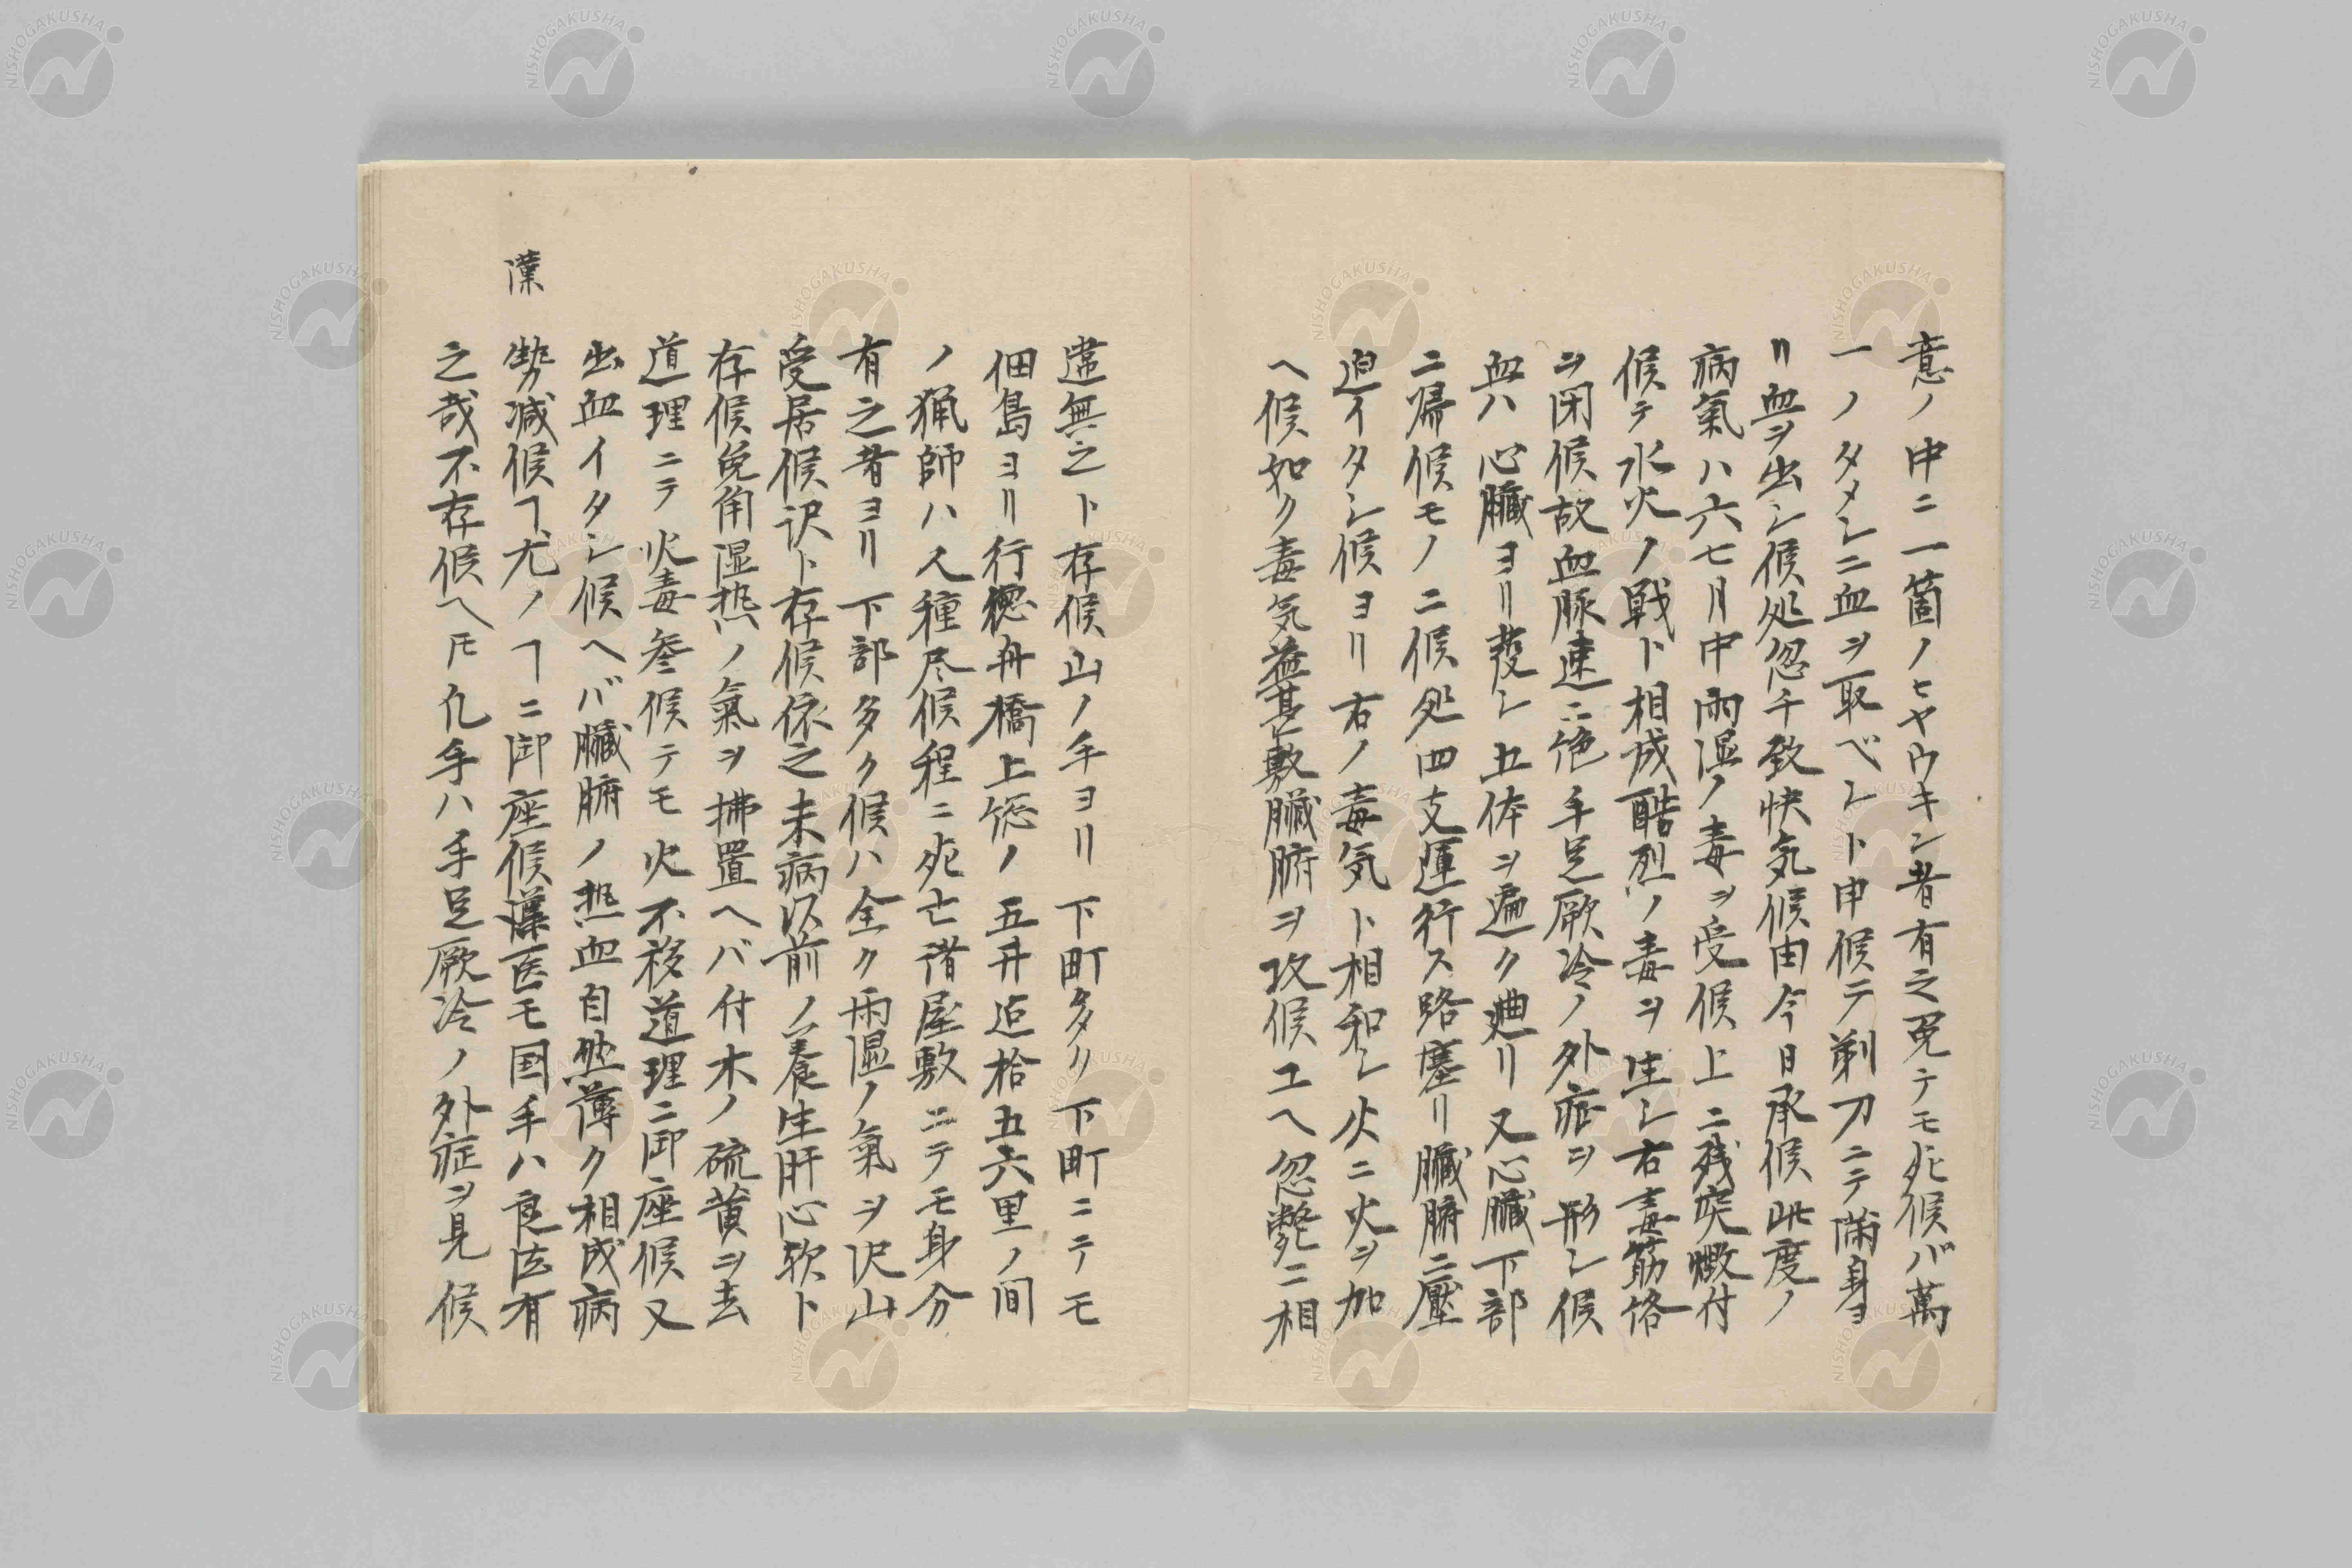 意ノ中ニ一箇ノヒヤウキン者有之免テモ死候バ萬
一ノタメシニ血ヲ取ベシト申候テ剃刀ニテ満身ヨ
リ血ヲ出シ候処忽チ致快気候由今日承候此度ノ
病氣ハ六七月中雨湿ノ毒ヲ受候上ニ残炎燉付
候テ水火ノ戦ト相成酷烈ノ毒ヲ生シ右毒筋络
ヲ閉候故血脉速ニ絶手足厥冷ノ外症ヲ形シ候
血ハ心臓ヨリ發シ五体ヲ遍ク廻リ又心臓下部
ニ帰候モノニ候処四支運行ス路塞リ臓腑ニ壓
迫イタシ候ヨリ右ノ毒気ト相和シ火ニ火ヲ加
ヘ候如ク毒気益甚敷臓腑ヲ攻候エヘ忽斃ニ相
違無之ト存候山ノ手ヨリ下町多ク下町ニテモ
佃島ヨリ行徳舟橋上総ノ五井迠拾五六里ノ間
ノ猟師ハ人種尽候程ニ死亡借屋敷ニテモ身分
有之者ヨリ下部多ク候ハ全ク雨湿ノ氣ヲ沢山
受居候訳ト存候依之未病以前ノ養生肝心歟ト
存候免角湿热ノ氣ヲ拂置ヘバ付木ノ硫黄ヲ去
道理ニテ火毒参候テモ火不移道理ニ御座候又
出血イタシ候ヘバ臓腑ノ热血自然薄ク相成病
勢减候ヿ尤ノヿニ御座候漢医モ国手ハ良法有
漢
之哉不存候ヘ𪜈凢手ハ手足厥冷ノ外症ヲ見候
NISHOGAKUSHA